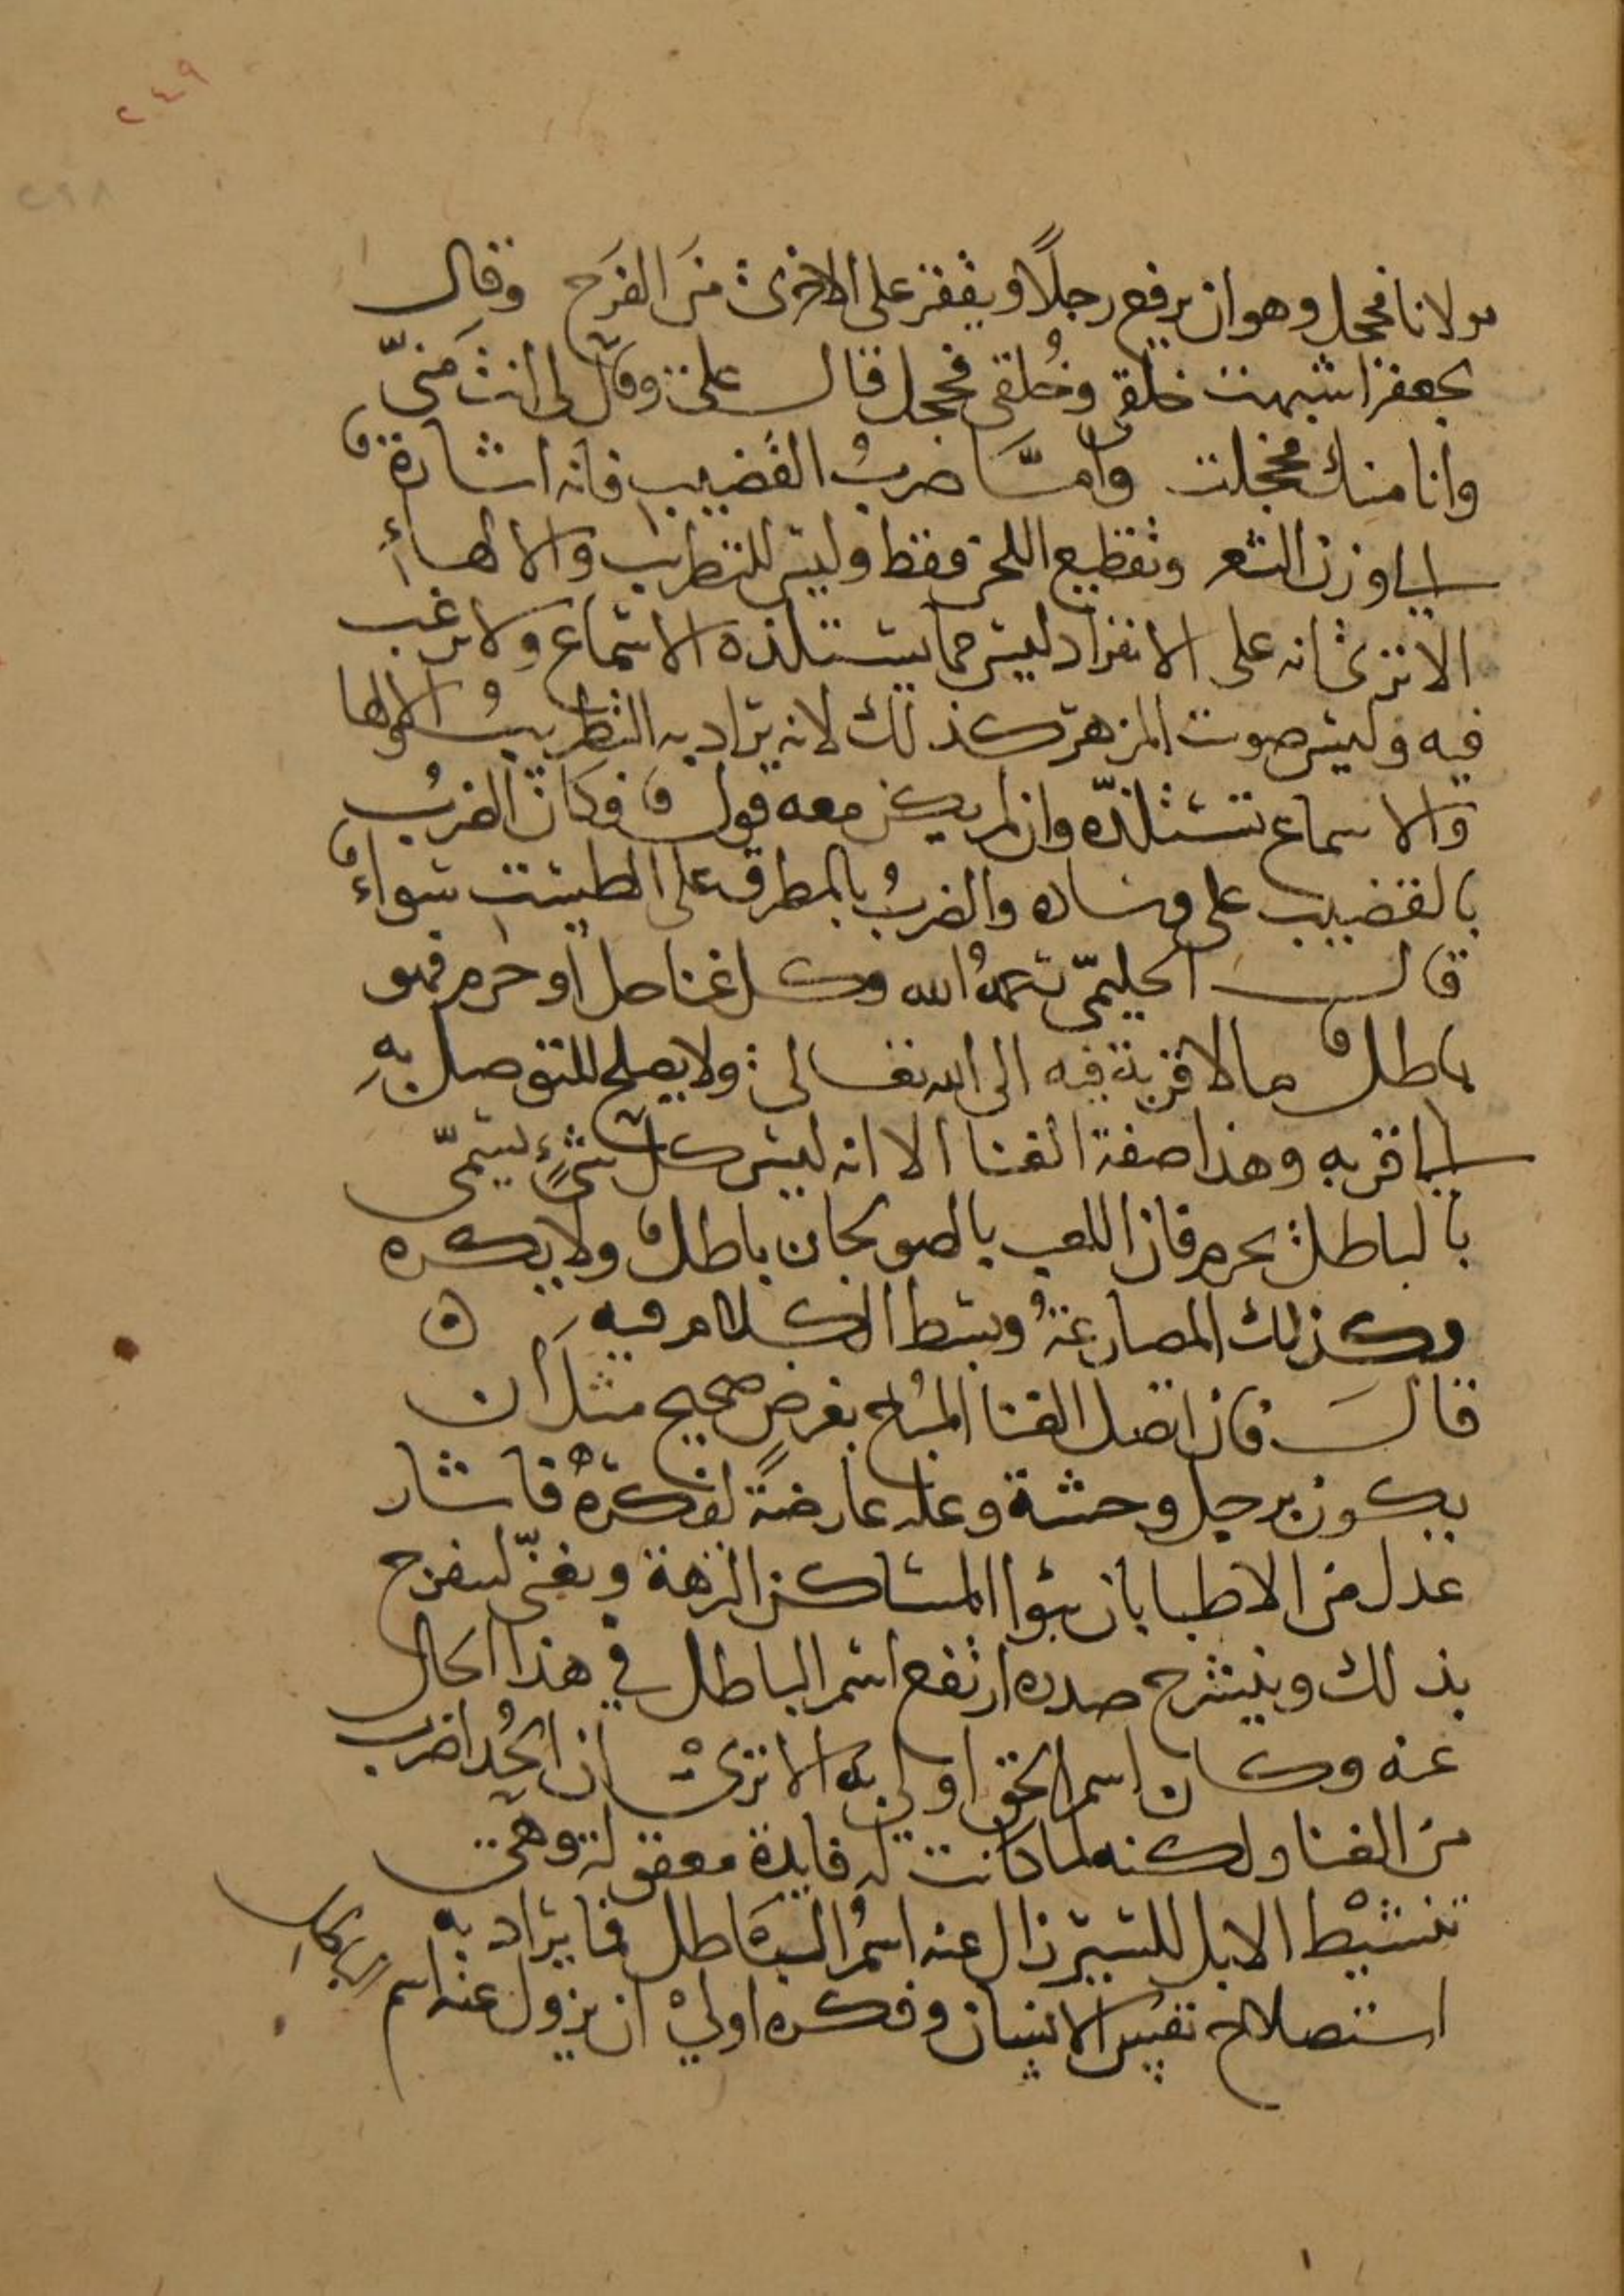 ٢٤٩
٢٩٨
مولانا فحجل وهو ان يرفع رجلًا ويقفز على الاخرى من الفرح وقال
لجعفر اشبهت خلقى وخُلقى فحجل قال على وقال لى انت منّى
وانا منك فحجلت وامّا ضربُ القضيب فانه اشارة
الى وزن الشعر وتقطيع اللحن فقط وليس للتطريب والالهاءِ
الا ترى انه على الانفراد ليس مما يستلذه الاسماع ولا يرغب
فيه وليس صوت المزهر كذلك لانه يراد به التطريبُ والالها
والاسماع تستلذّه وان لم يكن معه قول فكان الضربُ
بالقضيب على وساده والضربُ بالمطرقه على الطست سواءٌ
قال الحليمىّ رحمهُ الله وكل غنا حل او حرم فهو
باطل مما لا قربة فيه الى الله تعالى ولا يصلح للتوصل بهِ
الى قربه وهذا صفة الغنا الا انه ليس كل شئٍ يسمّى
بالباطل يحرم فان اللعب بالصولجان باطل ولا يكره
وكذلك المصارعةُ وبسط الكلام فيه ه
قال فان اتصل الغنا المُباح بغرضٍ صحيح مثل ان
يكون برجل وحشة وعله عارضةً لفكرهُ فاشار
عدل من الاطبا بان يبوا المساكن النزهة ويغنّى ليفرح
بذلك وينشرح صدره ارتفع اسم الباطل في هذا الحال
عنه وكان اسم الحق اولى به الا ترى ان الحُدا ضرب
من الغنا ولكنه لما كانت له فايدة معقوله وهى
تنشيط الابل للسير زال عنه اسمُ الباطل فما يراد به
استصلاح نفس الانسان وفكره اولى ان يزول عنه اسم الباطل